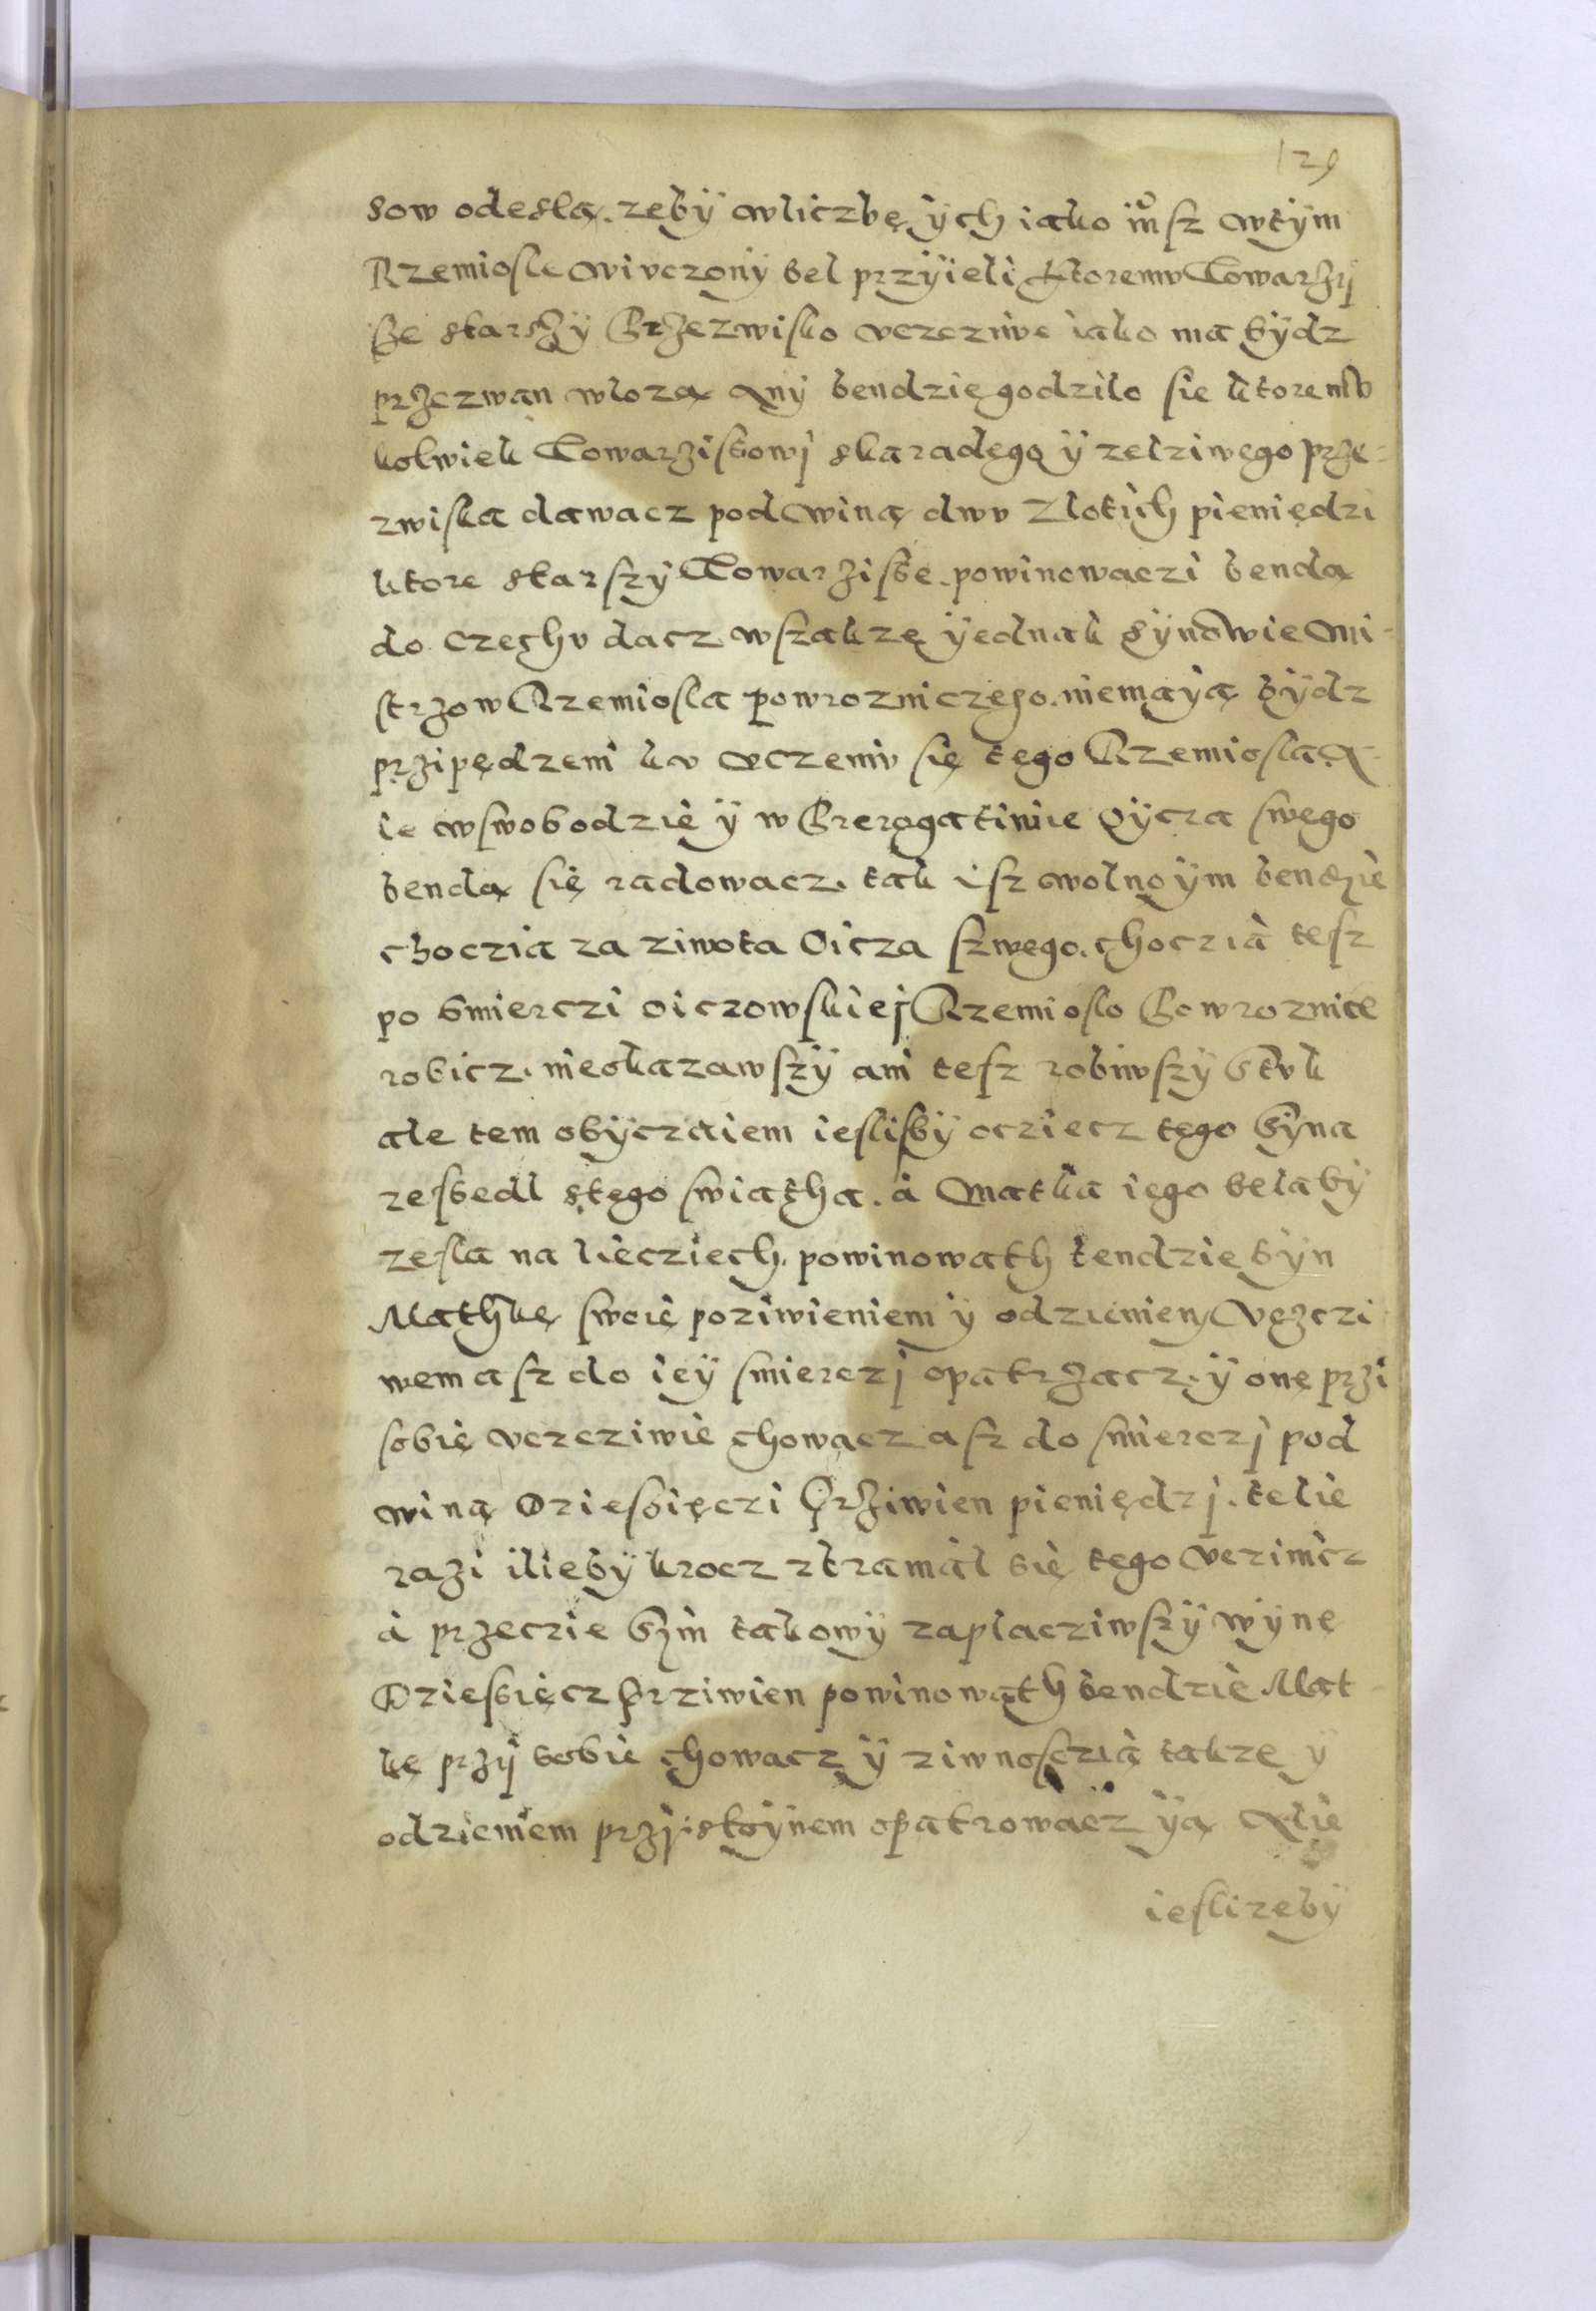 129
sow odesla. zebÿ wliczbę ÿch iako iusz wtÿm
Rzemiosle wiuczonÿ bel przÿieli ktoremu Towarzÿ
sze starszÿ Przezwisko uczciwe iako ma bÿdz
przezwan wloza Anÿ bendzie godzilo sie ktoremu
kolwiek Towarziszowj skaradego ÿ zelziwego prze-
zwiska dawacz pod winą dwu Zlotich pieniędzi
ktore starszÿ Towarzisze powinowaczi benda
do Czechu dacz wszakzę ÿednak sÿnowie Mi-
strzow Rzemiosla powrozniczego. niemaÿą bÿdz
przipędzeni ku uczeniu się tego Rzemiosla A-
le wswobodzie ÿ w Prerogatiwie Oÿcza swego
benda się radowacz. tak isz wolno ÿm bendzie
choczia za ziwota Oicza szwego. choczia tesz
po smierczi oiczowskiej Rzemioslo Powroznice
robicz. nieokazawszÿ ani tesz robiwszÿ sztuk
ale tem obÿczaiem ieslisbÿ ocziecz tego Sÿna
zeszedl stego swiatha. a Matka iego belabÿ
zesla na lieciech. powinowath bendzie sÿn
Mathkę swoię poziwieniem ÿ odzieniem Uczczi
wem asz do ieÿ smierczj opatrzacz. ÿ onę przi
sobię uczcziwie chowacz asz do smierczj pod
winą Dziesięczi Grziwien pieniędzj. telie
razi iliebÿ krocz zbramał się tego uczinicz
a przeczie Sÿn takowÿ zaplacziwszÿ wÿnę
Dziesięcz Grziwien powinowath bendzie Mat-
kę przÿ sobie chowacz ÿ ziwnosczią takze ÿ
odzieniem przistoÿnem opatrowacz ÿą Alie
ieslizebÿ